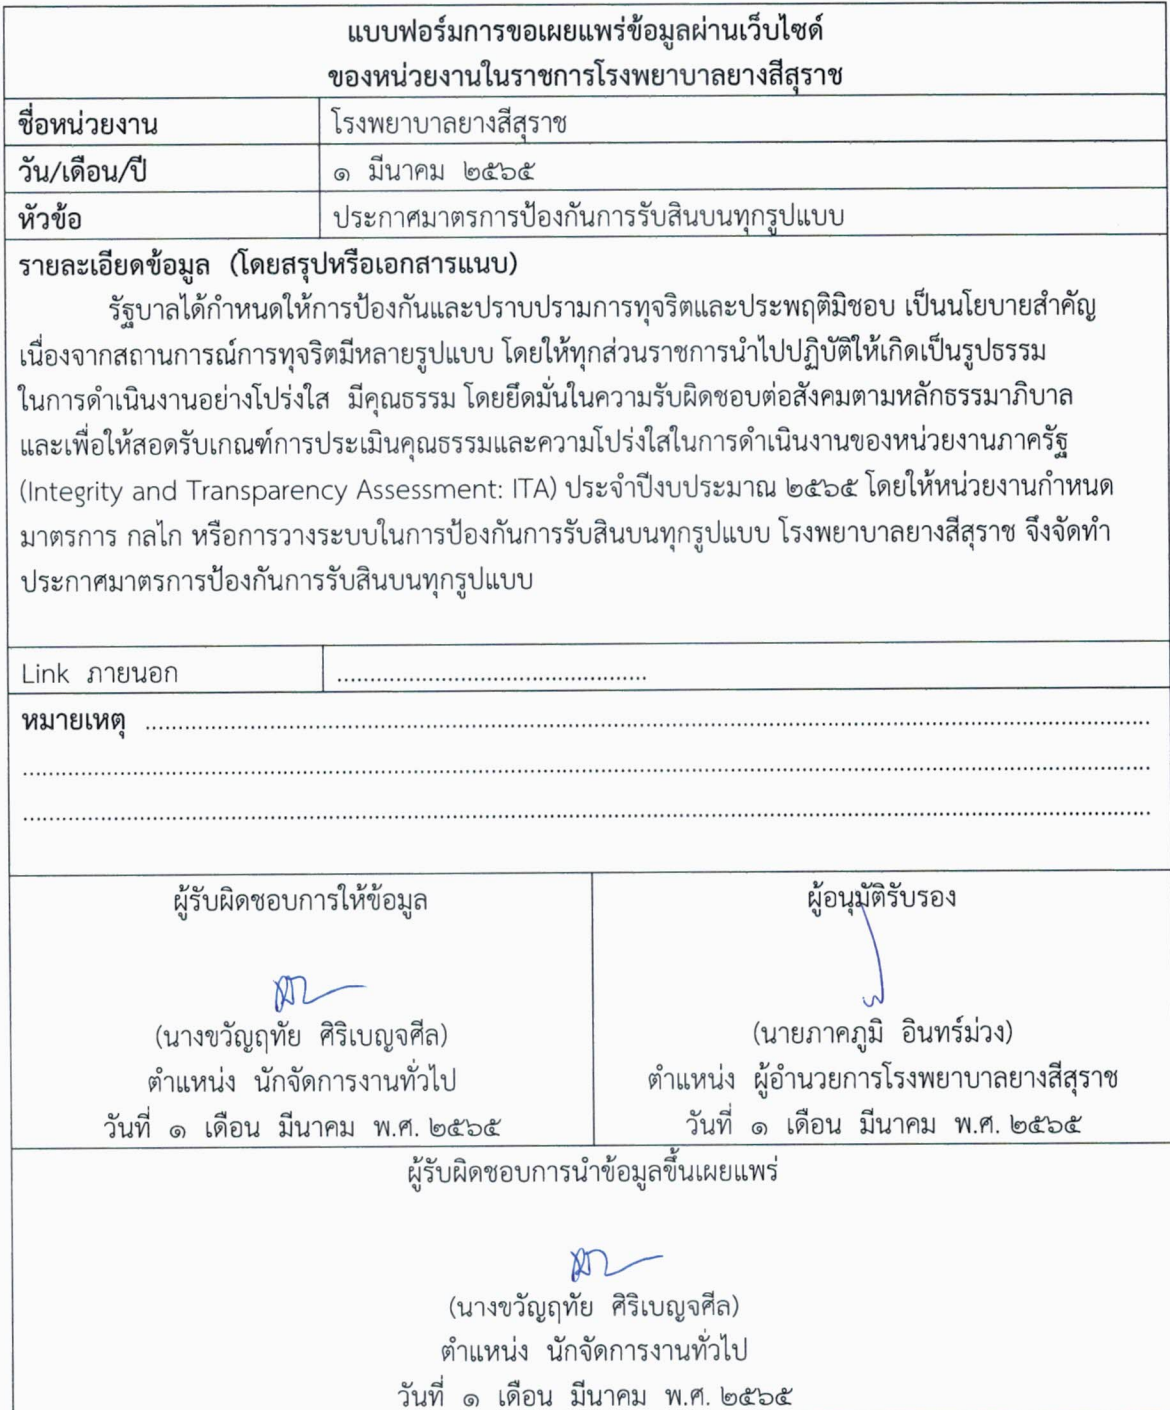 แบบฟอร์มการขอเผยแพร่ข้อมูลผ่านเว็บไซต์
ของหน่วยงานในราชการโรงพยาบาลยางสีสุราช
ชื่อหน่วยงาน โรงพยาบาลยางสีสุราช
วัน/เดือน/ปี ๑ มีนาคม ๒๕๖๕
หัวข้อ ประกาศมาตรการป้องกันการรับสินบนทุกรูปแบบ
รายละเอียดข้อมูล (โดยสรุปหรือเอกสารแนบ)
รัฐบาลได้กำหนดให้การป้องกันและปราบปรามการทุจริตและประพฤติมิชอบ เป็นนโยบายสำคัญ
เนื่องจากสถานการณ์การทุจริตมีหลายรูปแบบ โดยให้ทุกส่วนราชการนำไปปฏิบัติให้เกิดเป็นรูปธรรม
ในการดำเนินงานอย่างโปร่งใส มีคุณธรรม โดยยึดมั่นในความรับผิดชอบต่อสังคมตามหลักธรรมาภิบาล
และเพื่อให้สอดรับเกณฑ์การประเมินคุณธรรมและความโปร่งใสในการดำเนินงานของหน่วยงานภาครัฐ
(Integrity and Transparency Assessment: ITA) ประจำปีงบประมาณ ๒๕๖๕ โดยให้หน่วยงานกำหนด
มาตรการ กลไก หรือการวางระบบในการป้องกันการรับสินบนทุกรูปแบบ โรงพยาบาลยางสีสุราช จึงจัดทำ
ประกาศมาตรการป้องกันการรับสินบนทุกรูปแบบ
Link ภายนอก ................................................
หมายเหตุ ................................................................................
................................................................................
................................................................................
ผู้รับผิดชอบการให้ข้อมูล
(นางขวัญฤทัย ศิริเบญจศีล)
ตำแหน่ง นักจัดการงานทั่วไป
วันที่ ๑ เดือน มีนาคม พ.ศ. ๒๕๖๕
ผู้อนุมัติรับรอง
(นายภาคภูมิ อินทร์ม่วง)
ตำแหน่ง ผู้อำนวยการโรงพยาบาลยางสีสุราช
วันที่ ๑ เดือน มีนาคม พ.ศ. ๒๕๖๕
ผู้รับผิดชอบการนำข้อมูลขึ้นเผยแพร่
(นางขวัญฤทัย ศิริเบญจศีล)
ตำแหน่ง นักจัดการงานทั่วไป
วันที่ ๑ เดือน มีนาคม พ.ศ. ๒๕๖๕